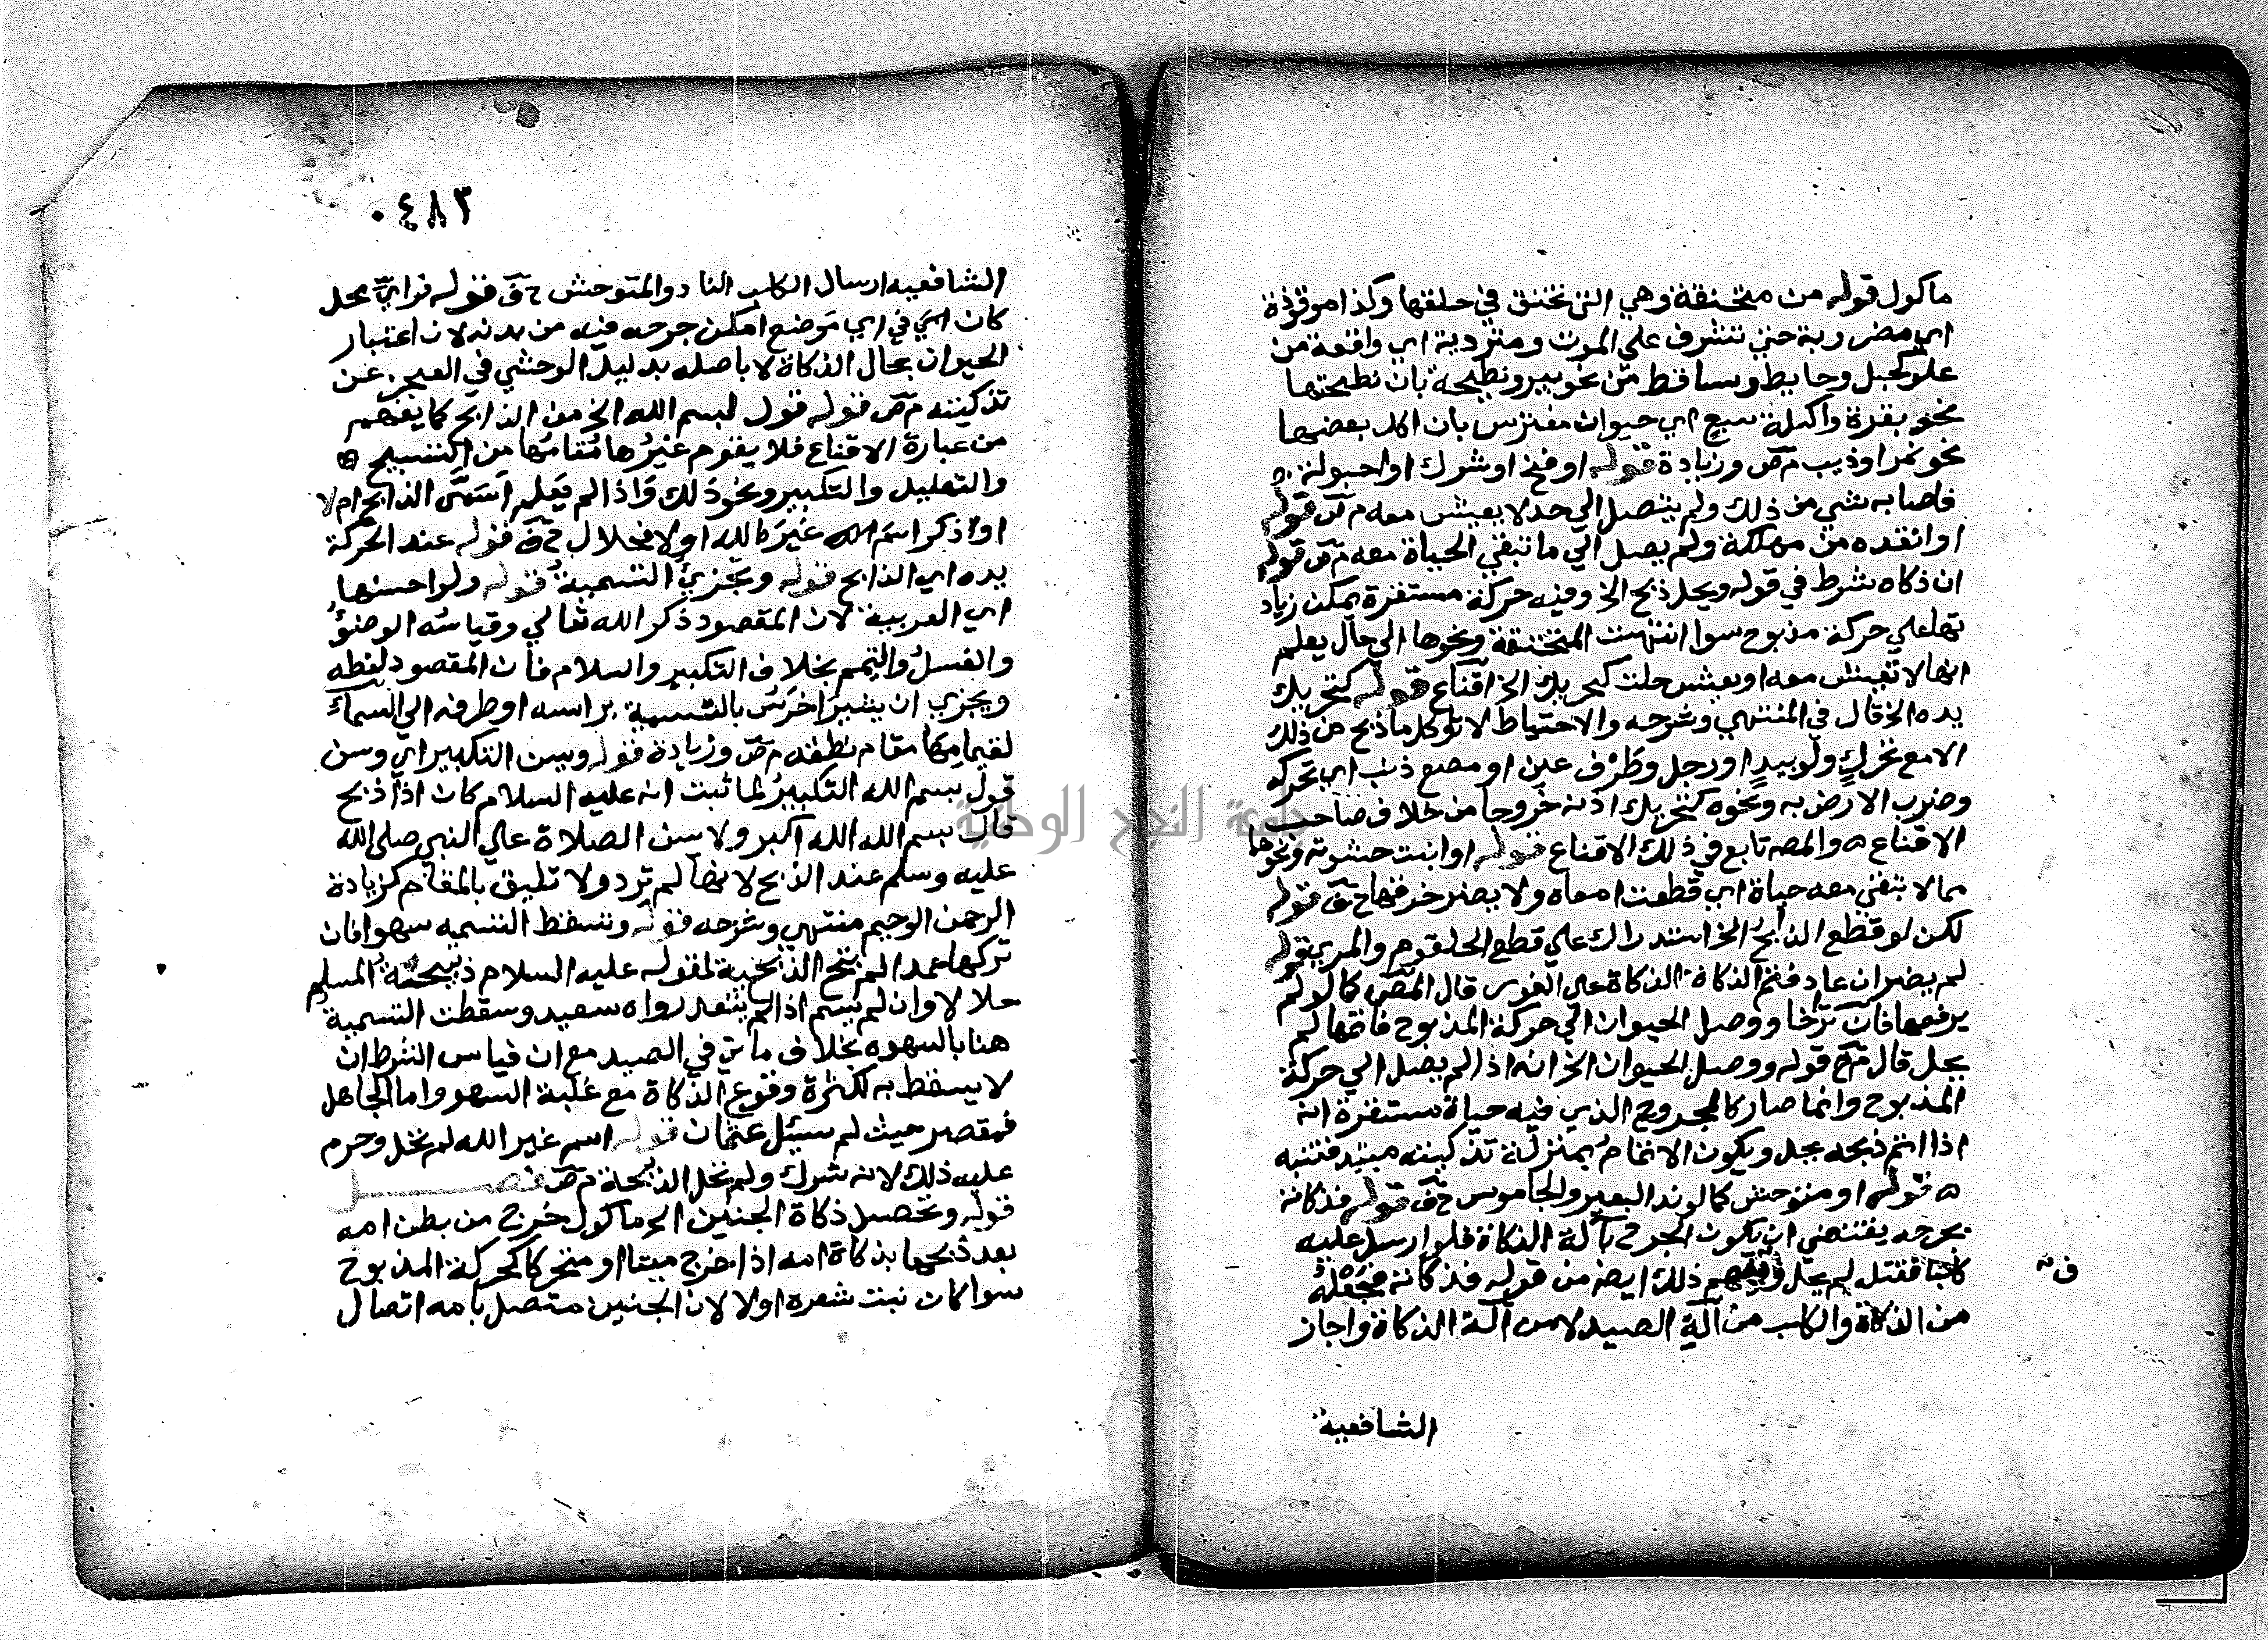 ماكول قوله من منخنقة وهي التي تختنق في حلقها وكذا موقوذة
اي مضروبة حتي تشرف علي الموت ومتردية اي واقعة من
علو كجبل وحايط وساقط من نحو بير ونطيحة بان نطحتها
نحو بقرة واكيلة سبع اي حيوان مفترس بان اكل بعضها
نحو نمر او ذيب م ص وزيادة قوله او فخ او شرك او احبولة
فاصابه شي من ذلك ولم يتصل الي حد لا يعيش معه م ص قوله
او انقذه من مهلكة ولم يصل الي ما تبقي الحياة معه م ص قوله
ان ذكاه شرط في قوله ويحل ذبح الخ وفيه حركة مستقرة يمكن زياد
تها علي حركة مذبوح سوا انتهت المنخنقة ونحوها الي حال يعلم
انها لا تعيش معه او يعيش حلت كبحريك الخ اقناع قوله كتحريك
يده الخ قال في المنتهي وشرحه والاحتياط لا توكل ما ذبح من ذلك
الا مع تحرك ولو بيد او رجل وطرف عين او مصع ذنب اي تحركه
وضرب الارض به ونحوه كتحريك اذنه خروجا من خلاف صاحب
الاقناع ه والمص تابع في ذلك الاقناع قوله او ابنت حشوته ونحوها
مما لا تبقي معه حياة اي قطعت امعاه ولا يضر خرقها ح ف قوله
لكن لو قطع الذابح الخ استدراك علي قطع الحلقوم والمري قوله
لم يضر ان عاد فتم الذكاة الذكاة علي الفور قال المص كما لو لم
يرفعها فان تراخا ووصل الحيوان الي حركة المذبوح فاتمها لم
يحل قال م ع قوله ووصل الحيوان الخ انه اذا لم يصل الي حركة
المذبوح وانما صار كالمجروح الذي فيه حياة مستقرة انه
اذا اتم ذبحه يحل ويكون الاتمام بمنزلة تذكيته مبتد فتنبه
ه قوله او متوحش كما لو ند البعير والجاموس ح ف قوله فذكاته
بجرحه يقتضي ان يكون الجرح بآلة الذكاة فلو ارسل عليه
كلبا فقتل لم يحل ويفهم ذلك ايضه من قوله فذكاته فجعله
ف
من الذكاة والكلب من آلة الصيد لا من آلة الذكاة واجاز
الشافعية
٠٤٨٣
الشافعيه ارسال الكلب الناد والمتوحش ح ف قوله في اي محل
كان اي في اي موضع امكن جرحه فيه من بدنه لان اعتبار
الحيوان بحال الذكاة لا باصله بدليل الوحشي في العجز عن
تذكيته م ص قوله قول لبسم الله الخ من الذابح كما يفهم
من عبارة الاقناع فلا يقوم غيرها مقامها من التسبيح
والتهليل والتكبير ونحو ذلك واذا لم يعلم اسمي الذابح ام لا
او اذكر اسم الله غيره كالله اولا فحلال ح ف قوله عند الحركة
يده اي الذابح قوله وتجزي التسمية قوله ولو احسنها
اي العربية لان المقصود ذكر الله تعالي وقياسه الوضؤ
والغسل والتيمم بخلاف التكبير والسلام فان المقصود لفظه
ويجزي ان يشير اخرس بالتسمية براسه او طرفه الي السماء
لقيامها مقام نطقه م ص وزيادة قوله ويسن التكبير اي وسن
قول بسم الله التكبير لما ثبت انه عليه السلام كان اذا ذبح
قال بسم الله الله اكبر ولا سن الصلاة علي النبي صلي الله
عليه وسلم عند الذبح لانها لم ترد ولا تليق بالمقام كزيادة
الرحمن الرحيم منتهي وشرحه قوله وتسقط التسميه سهوا فان
تركها عمدا لم تبح الذبيحة لقوله عليه السلام ذبيحة المسلم
حلال وان لم يسم اذا لم يتعمد رواه سعيد وسقطت التسمية
هنا بالسهو بخلاف ما ياتي في الصيد مع ان قياس الشرط ان
لا يسقط به لكثرة وقوع الذكاة مع غلبة السهو واما الجاهل
فمقصر حيث لم سيئل عثمان قوله اسم غير الله لم تحل وحرم
عليه ذلك لانه شرك ولم تحل الذبيحة م ص فصل
قوله وتحصل ذكاة الجنين الخ ماكول خرج من بطن امه
بعد ذبحها بذكاة امه اذا خرج ميتا او متحركا كحركة المذبوح
سوا كان نبت شعره اولا لان الجنين متصل بامه اتصال
جامعة النجاح الوطنية